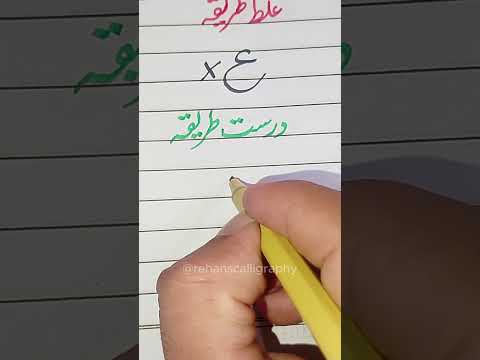 غلط طریقہ
ع x
درست طریقہ
@rehanscalligraphy